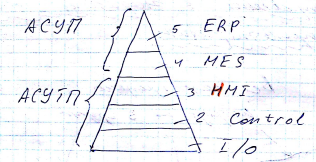 АСУП
5 ERP
4 MES
АСУТП
3 HMI
2 Control
I/O